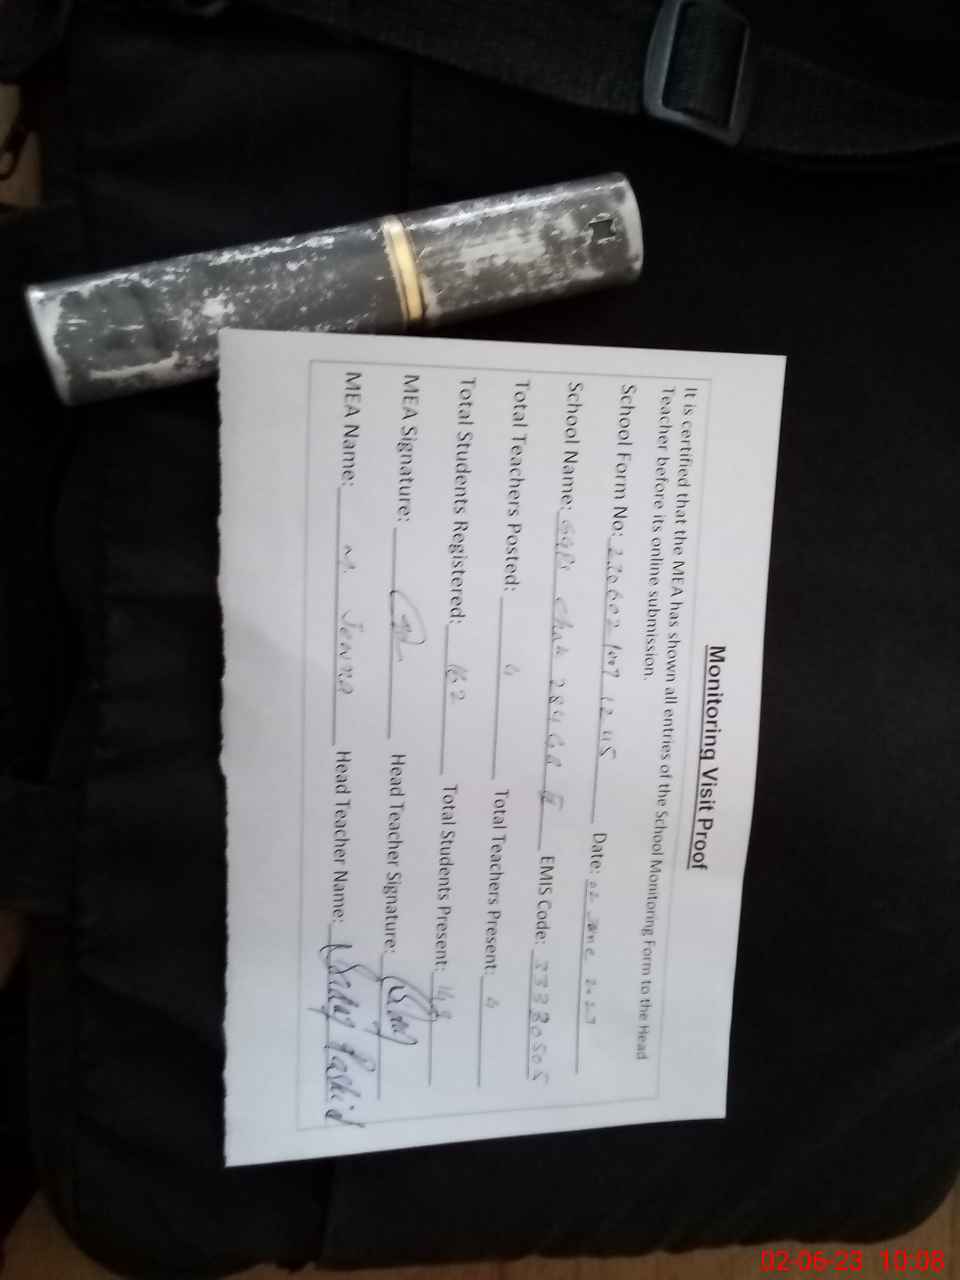 Monitoring Visit Proof
It is certified that the MEA has shown all entries of the School Monitoring Form to the Head
Teacher before its online submission.
School Form No: 230602 1007 1245 Date: 02 June 2023
School Name: GGPS Chak 284 GB II EMIS Code: 33380505
Total Teachers Posted: 4 Total Teachers Present: 4
Total Students Registered: 162 Total Students Present: 148
MEA Signature: Head Teacher Signature:
MEA Name: M. Head Teacher Name: Rashid
02-06-23 10:08